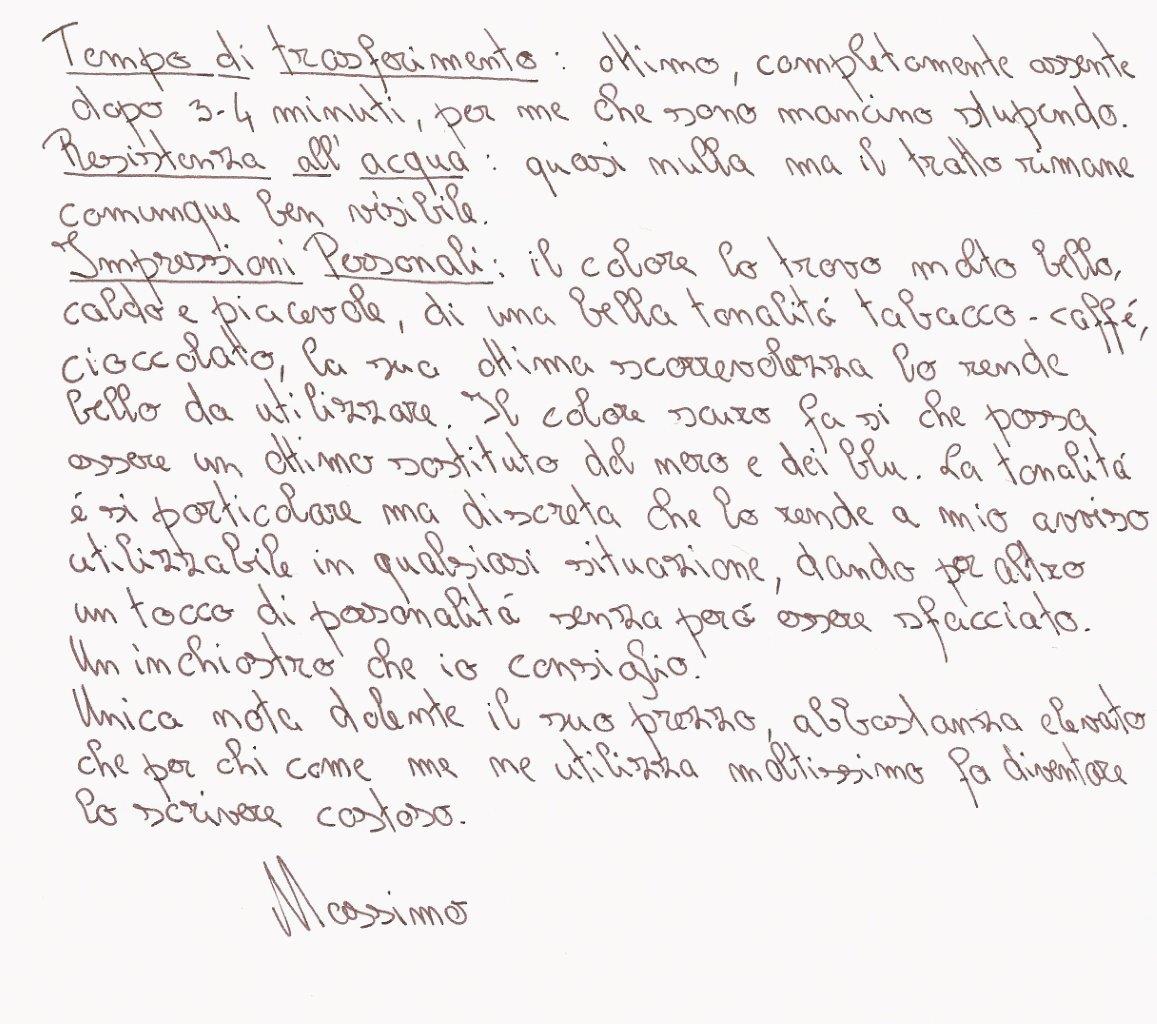 Tempo di trasferimento: ottimo, completamente assente
dopo 3-4 minuti, per me che sono mancino stupendo.
Resistenza all'acqua: quasi nulla ma il tratto rimane
comunque ben visibile.
Impressioni Personali: il colore lo trovo molto bello,
caldo e piacevole, di una bella tonalitá tabacco-caffé,
cioccolato, la sua ottima scorrevolezza lo rende
bello da utilizzare. Il colore scuro fa si che possa
essere un ottimo sostituto del nero e dei blu. La tonalitá
é si particolare ma discreta che lo rende a mio avviso
utilizzabile in qualsiasi situazione, dando per altro
un tocco di personalitá senza peró essere sfacciato.
Un inchiostro che io consiglio!
Unica nota dolente il suo prezzo, abbastanza elevato
che per chi come me ne utilizza moltissimo fa diventare
lo scrivere costoso.
Massimo